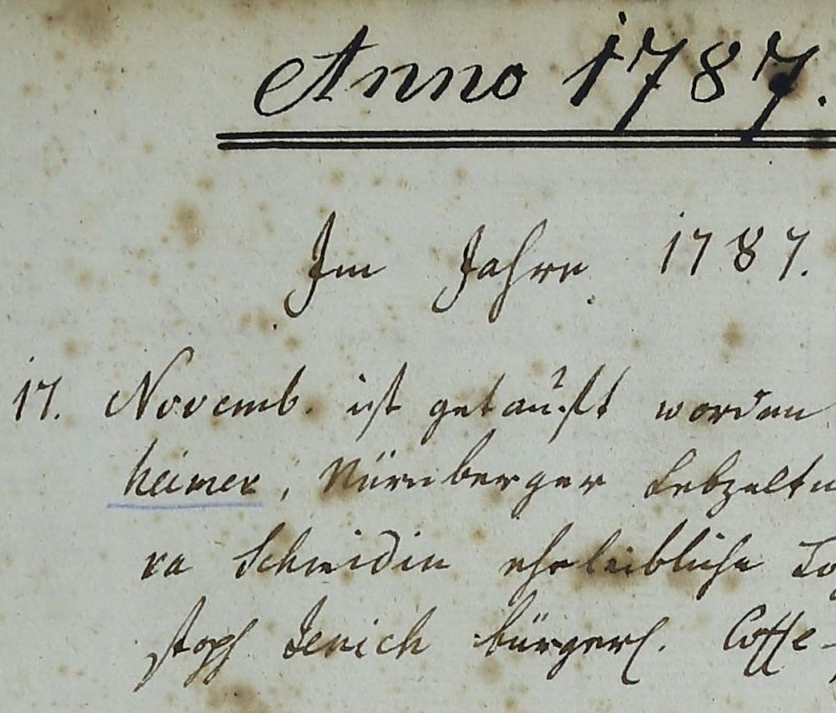 Anno 1787.
Im Jahre 1787.
17. Novemb. ist getauft worden
heimer, Nürnberger Lebzelt
ra Schmidin ehrleibliche To
stoph Jenich bürgerl. Coffe-